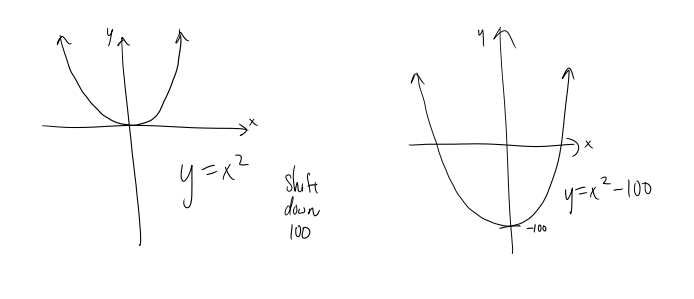 y
x
y = x²
shift
down
100
y
x
y = x² - 100
-100